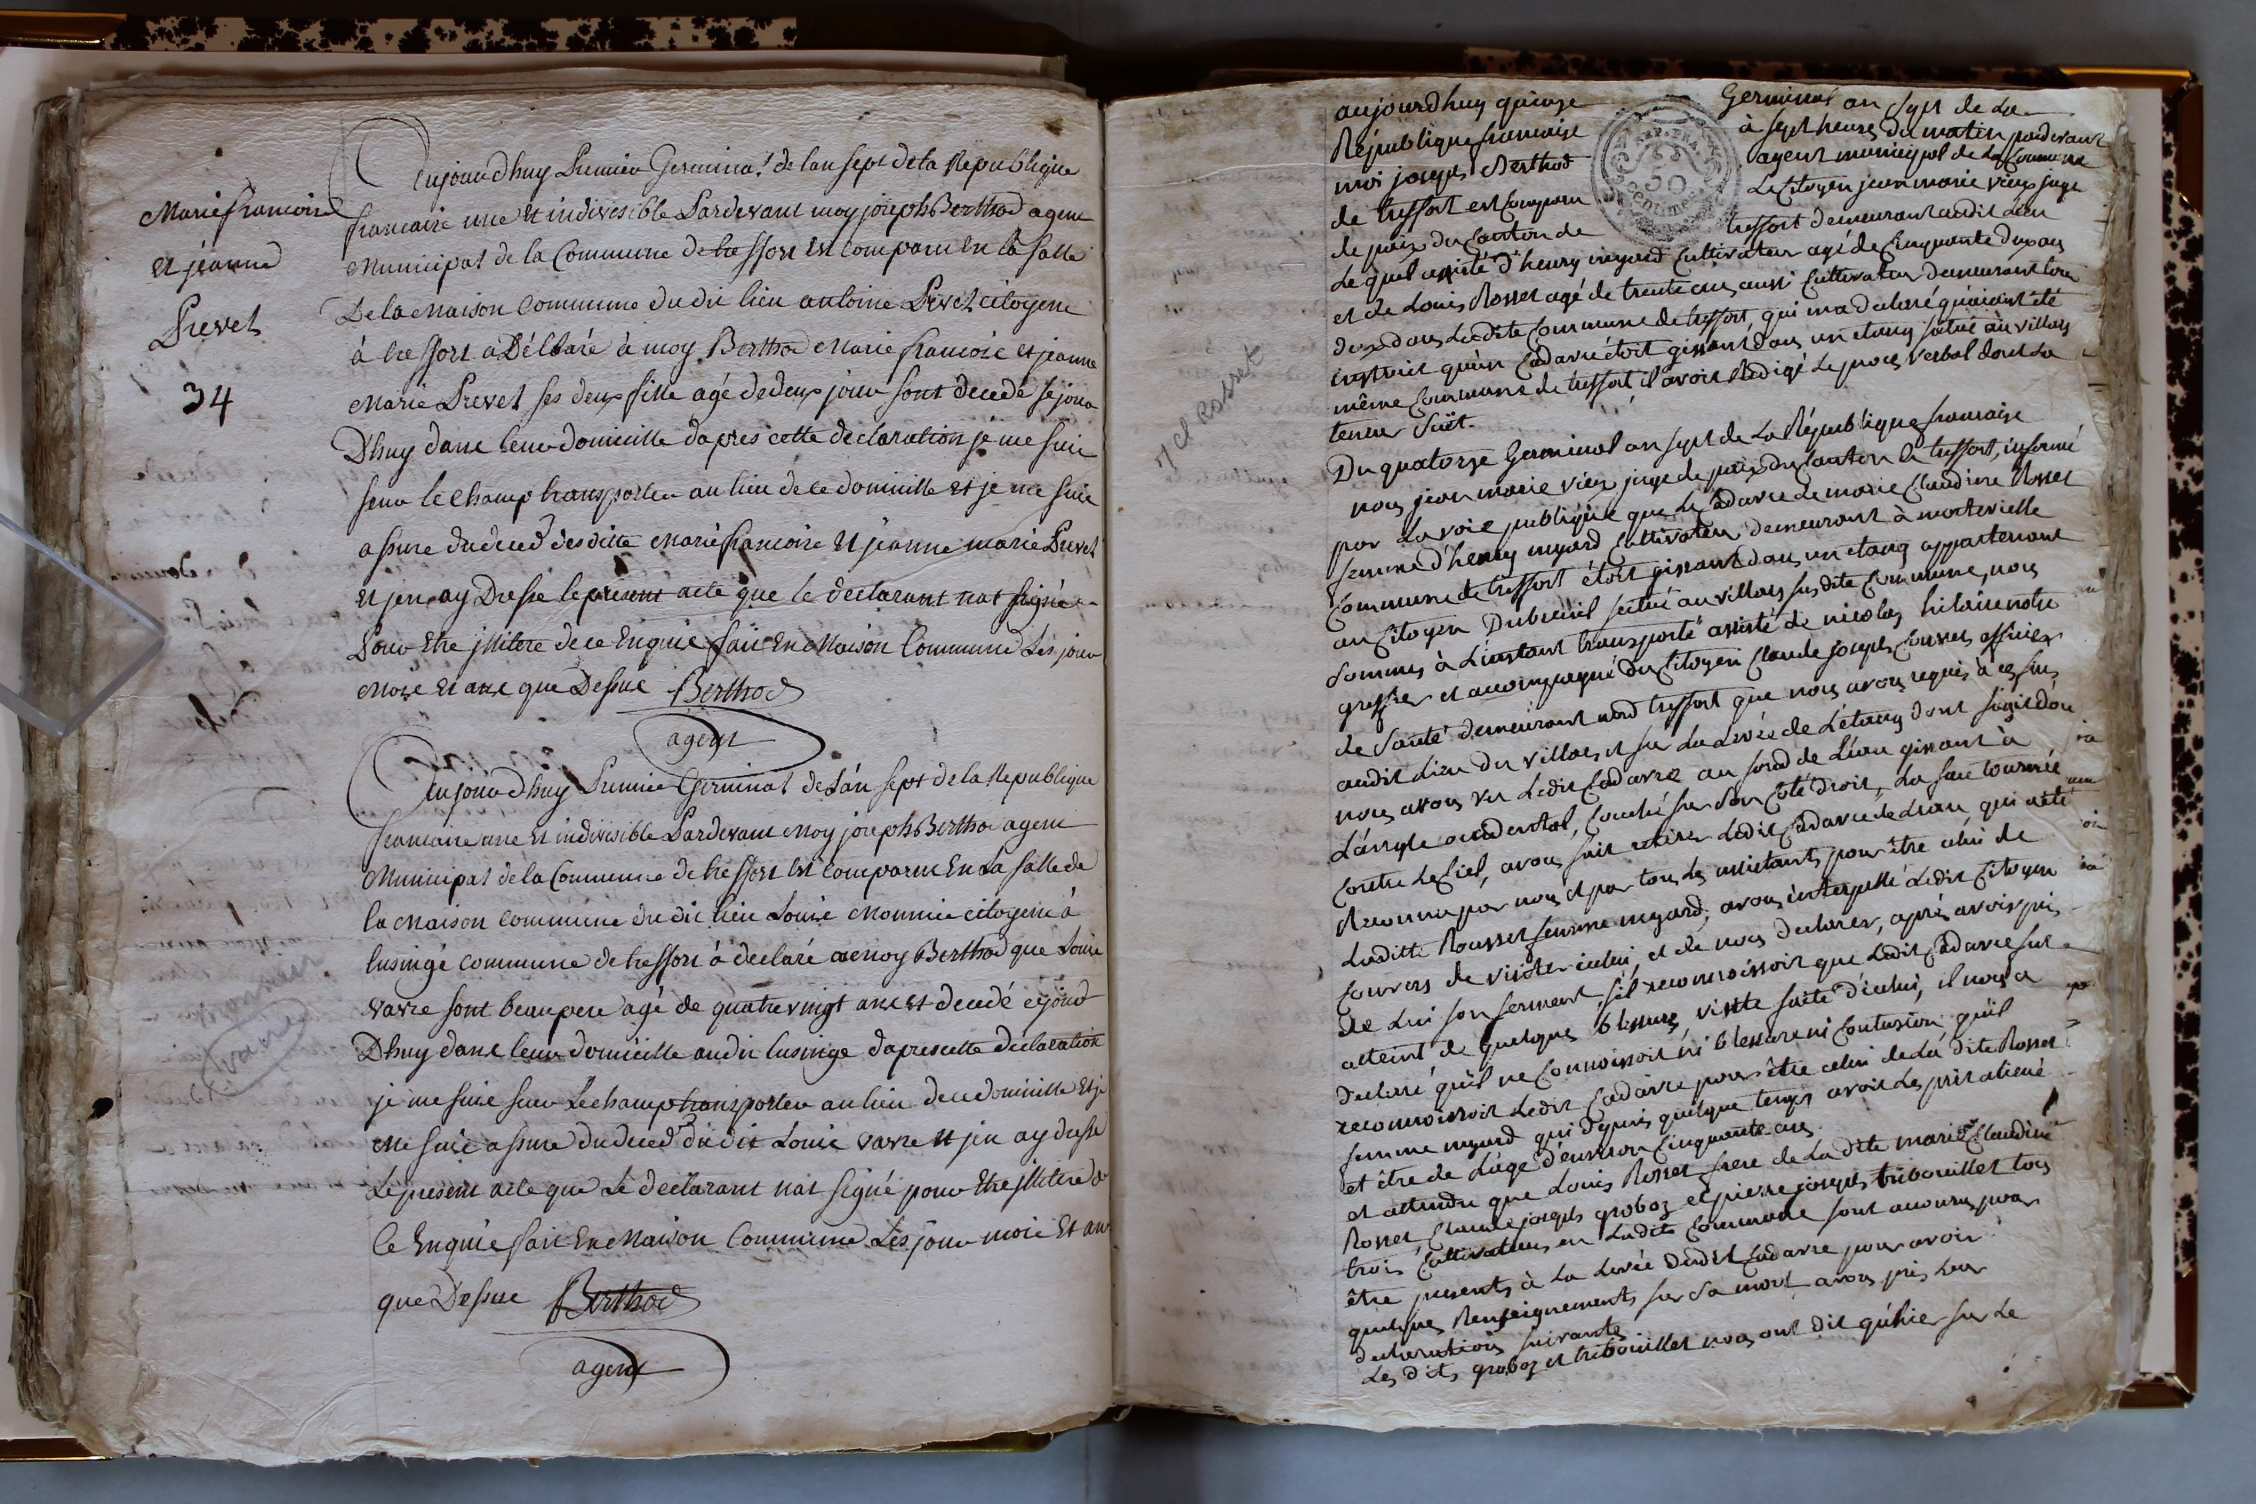 Marie francoise
et jeanne
Prevel
34
Aujourdhuy Premier Germinal de lan sept de la Republique
francaise une et indivisible Pardevant moy joseph Berthod agent
Municipal de la Commune de treffort est comparu En la salle
De la Maison commune du dit lieu antoine Prevel citoyen
à treffort a Délaré à moy Berthod Marie francoise et jeanne
Marie Prevel ses deux fille agé de deux jour sont decedé sejour
D'huy dans leur domicille dapres cette declaration je me suis
seur le champ transporter au lieu de ce domicille et je me suis
assure du deced des ditte Marie francoise et jeanne marie Prevel
et jen ay Dressé le présent acte que le declarant nat signé
Pour Etre jllitere de ce Enquis fait En Maison Commune Les jour
Moise et ans que Dessus Berthod
agent
Aujourdhuy Premier Germinal de Lán sept de la Republique
francaise une et indivisible Pardevant Moy joseph Berthod agent
Municipal de la Commune de treffort est comparu En La salle de
la Maison commune du dit lieu Louis Monnier citoyen à
lusingé commune de treffort à declaré a moy Berthod que Louis
varre sont beaupere agé de quatre vingt ans et decedé cejourd
D'huy dans leur domicille audit lusinge dapres cette declaration
je me suis seur Le champ transporter au lieu de ce domicille et je
Me suis assure du deced du dit Louis varre et jen ay dressé
Le present acte que Le declarant nat signé pour Etre jllitere de
Ce Enquis fait En Maison Commune Les jour mois Et ans
que Dessus Berthod
agent
varre
REP. FRA.
50
centimes
M Cl Rosset
aujourdhuy quinze Germinal an sept de La
République francaise à sept heures du matin pardevant
moi joseph Berthod agent municipal de La Commune
de treffort est Comparu Le Citoyen jean marie vieux juge
de paix du Canton de treffort demeurant audit Lieu
Lequel assisté d'henry myard Cultivateur agé de Cinquante deux ans
et de Louis Rosset agé de trente ans aussi Cultivateur demeurant tous
deux dans Ladite Commune de treffort, qui ma declaré quaiant été
instruit qu'un Cadavre étoit gissant dans un etang situé au villars
même Commune de treffort, il avoit Redigé Le proces verbal dont La
teneur Suit.
Du quatorze Germinal an sept de La République francaise
nous jean marie vieux juge de paix du Canton de treffort, informé
par La voie publique que Le Cadavre de marie Claudine Rosset
femme d'henry myard Cultivateur demeurant à montevielle
Commune de treffort étoit gissant dans un etang appartenant
au Citoyen Dubreuil situé au villars susdite Commune, nous
sommes à L'instant transporté assisté de nicolas hilaire notre
greffier et accompagné du Citoyen Claude joseph Convers officier
de Santé demeurant aud treffort que nous avons requis à ces fins
audit Lieu du villars, et sur La Levée de L'étang dont s'agit d'ou
nous avons vu Ledit Cadavre au fond de L'eau gissant à
L'angle occidental, Couché sur Son Côté droit, La face tournée
Contre Le Ciel, avons fait retirer Ledit Cadavre de L'eau, qui a été
Reconnu par nous et par tous Les assistants pour être celui de
Laditte Rousset femme myard, avons interpellé Ledit Citoyen
Convers de visiter icelui, et de nous declarer, après avoir pris
de Lui son serment s'il reconnoissoit que Ledit Cadavre fut
atteint de quelques blessures, visite faite d'icelui, il nous a
declaré qu'il ne Connoissoit ni blessure ni Contusion qu'il
reconnoissoit Ledit Cadavre pour être celui de La dite Rosset
femme myard qui depuis quelque temps avoit Lesprit aliené
et être de L'age d'environ Cinquante ans
et attendu que Louis Rosset frere de La dite marie Claudine
Rosset, Claude joseph groboz et pierre joseph tribouillet tous
trois Cultivateurs en Ladite Commune sont accourus pour
être presents à La Levée Dudit Cadavre pour avoir
quelques Renseignements sur Sa mort avons pris Leur
declarations suivantes
Les dits groboz et tribouillet nous ont dit qu'hier sur Le